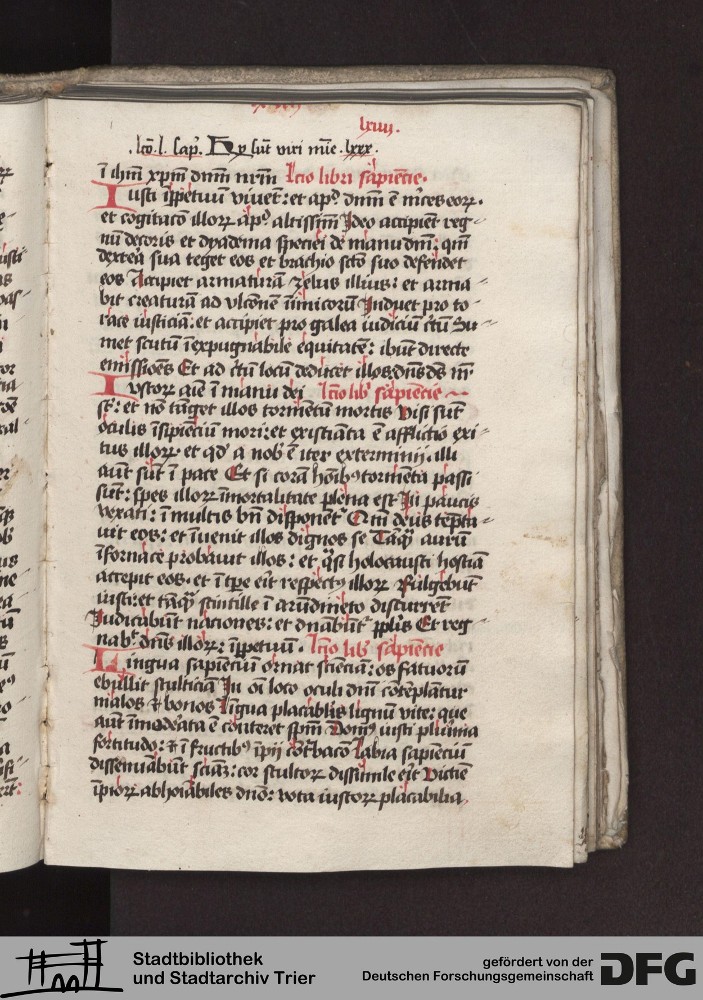 lxiiij.
.lcō.l. sap̄. Hij sūt viri mīe .lxxx.
ī ihm̄ xp̄m dnm̄ nrm̄ Lcio libri sapiēcie.
Iusti īp̄petuū viuēt: et ap̄ dnm̄ ē m̄ces eoꝝ.
et cogitacō illoꝝ ap̄ altissīm Ideo accipiēt reg⸗
nū decoris et dyadema speciei de manu dnī: qm̄
dextera sua teget eos et brachio sctō suo defendet
eos Accipiet armaturā zelus illius: et arma⸗
bit creaturā ad vlcōnem īimicorū Induet pro to⸗
race iusticiā: et accipiet pro galea iudiciū c̄tū Su⸗
met scutū īexpugnabile equitatē: ibūt directe
emissiōes Et ad c̄tū locū deducet illos dn̄s ds̄ nr̄
Iustoꝝ aīe ī manu dei Lcio lib̄ sapiēcie
sūt: et nō tāget illos tormētū mortis Visi sūt
oculis īsipiēciū mori: et existiāta ē afflictio exi⸗
tus illoꝝ. et qd̄ a nob̄ ē iter exterminij. illi
aūt sūt ī pace Et si corā hoīb⁹ tormēta passi
sūt: spes illoꝝ īmortalitate plena est In paucis
vexati: ī multis bn̄ disponēt̄ Qm̄ deus tēpta⸗
uit eos: et īuenit illos dignos se Tāqᷓ aurū
ī fornace probauit illos: et q̄si holocausti hostiā
accepit eos. et ī tp̄e eīt respect⁹ illoꝝ Fulgebūt
iusti: et tāqᷓ scintille ī arūdineto discurrēt
Iudicabūt naciones: et dn̄abūt̄ pp̄lis Et reg⸗
nab̄ dn̄s illoꝝ: īp̄petuū. Lcio lib̄ sapiēcie
Lingua sapiēciū ornat sciēciā: os fatuorū
ebullit stulticiā In oī loco oculi dnī cōtēplātur
malos ⁊ bonos Līgua placabilis lignū vite: que
aūt īmodeata ē cōteret sp̄m Dom⁹ iusti plurima
fortitudo: ⁊ ī fructib⁹ īpij cōt̄bacō Labia sapiēciū
dissemīabūt sciāz: cor stultoꝝ dissimile eīt Victīe
īpioꝝ abhoīabiles dnō: vota iustoꝝ placabilia
Stadtbibliothek
und Stadtarchiv Trier
gefördert von der
Deutschen Forschungsgemeinschaft
DFG